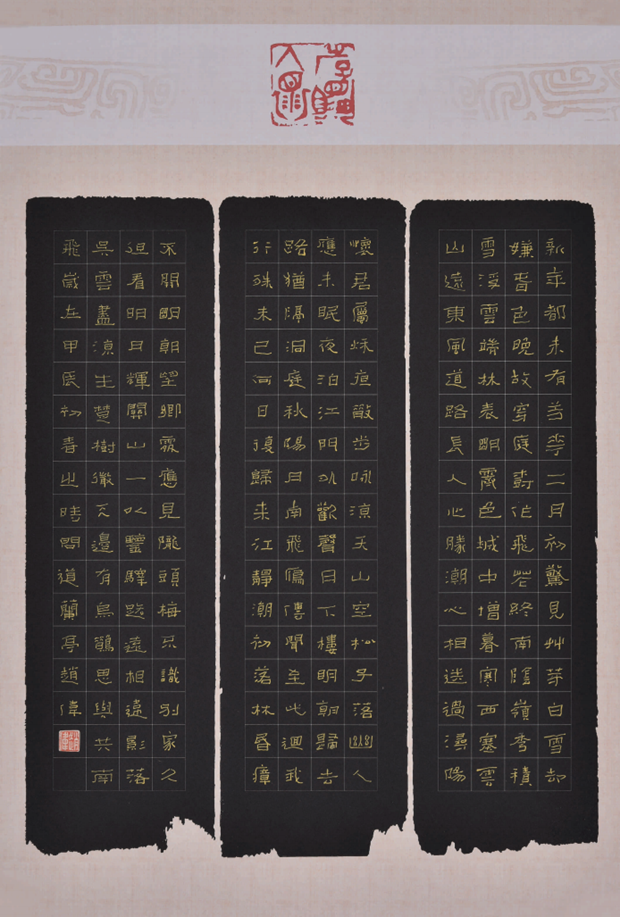 新年都未有芳華二月初驚見艸芽白雪却
嫌春色晚故穿庭樹作飛花終南陰嶺秀積
雪浮雲端林表明霽色城中增暮寒西塞雲
山遠東風道路長人心勝潮心相送過潯陽
懷君屬秋夜散步咏涼天山空松子落幽人
應未眠夜泊江門外歡聲月下樓明朝歸去
路猶隔洞庭秋陽月南飛鴈傳聞至此迴我
行殊未已何日復歸來江靜潮初落林昏瘴
不開明朝望鄉處應見隴頭梅只識別家久
迥看明月輝關山一以鑒驛路遠相違影落
吳雲盡涼生楚樹微天邊有烏鵲思與共南
飛歲在甲辰初春之時問道蘭亭趙偉